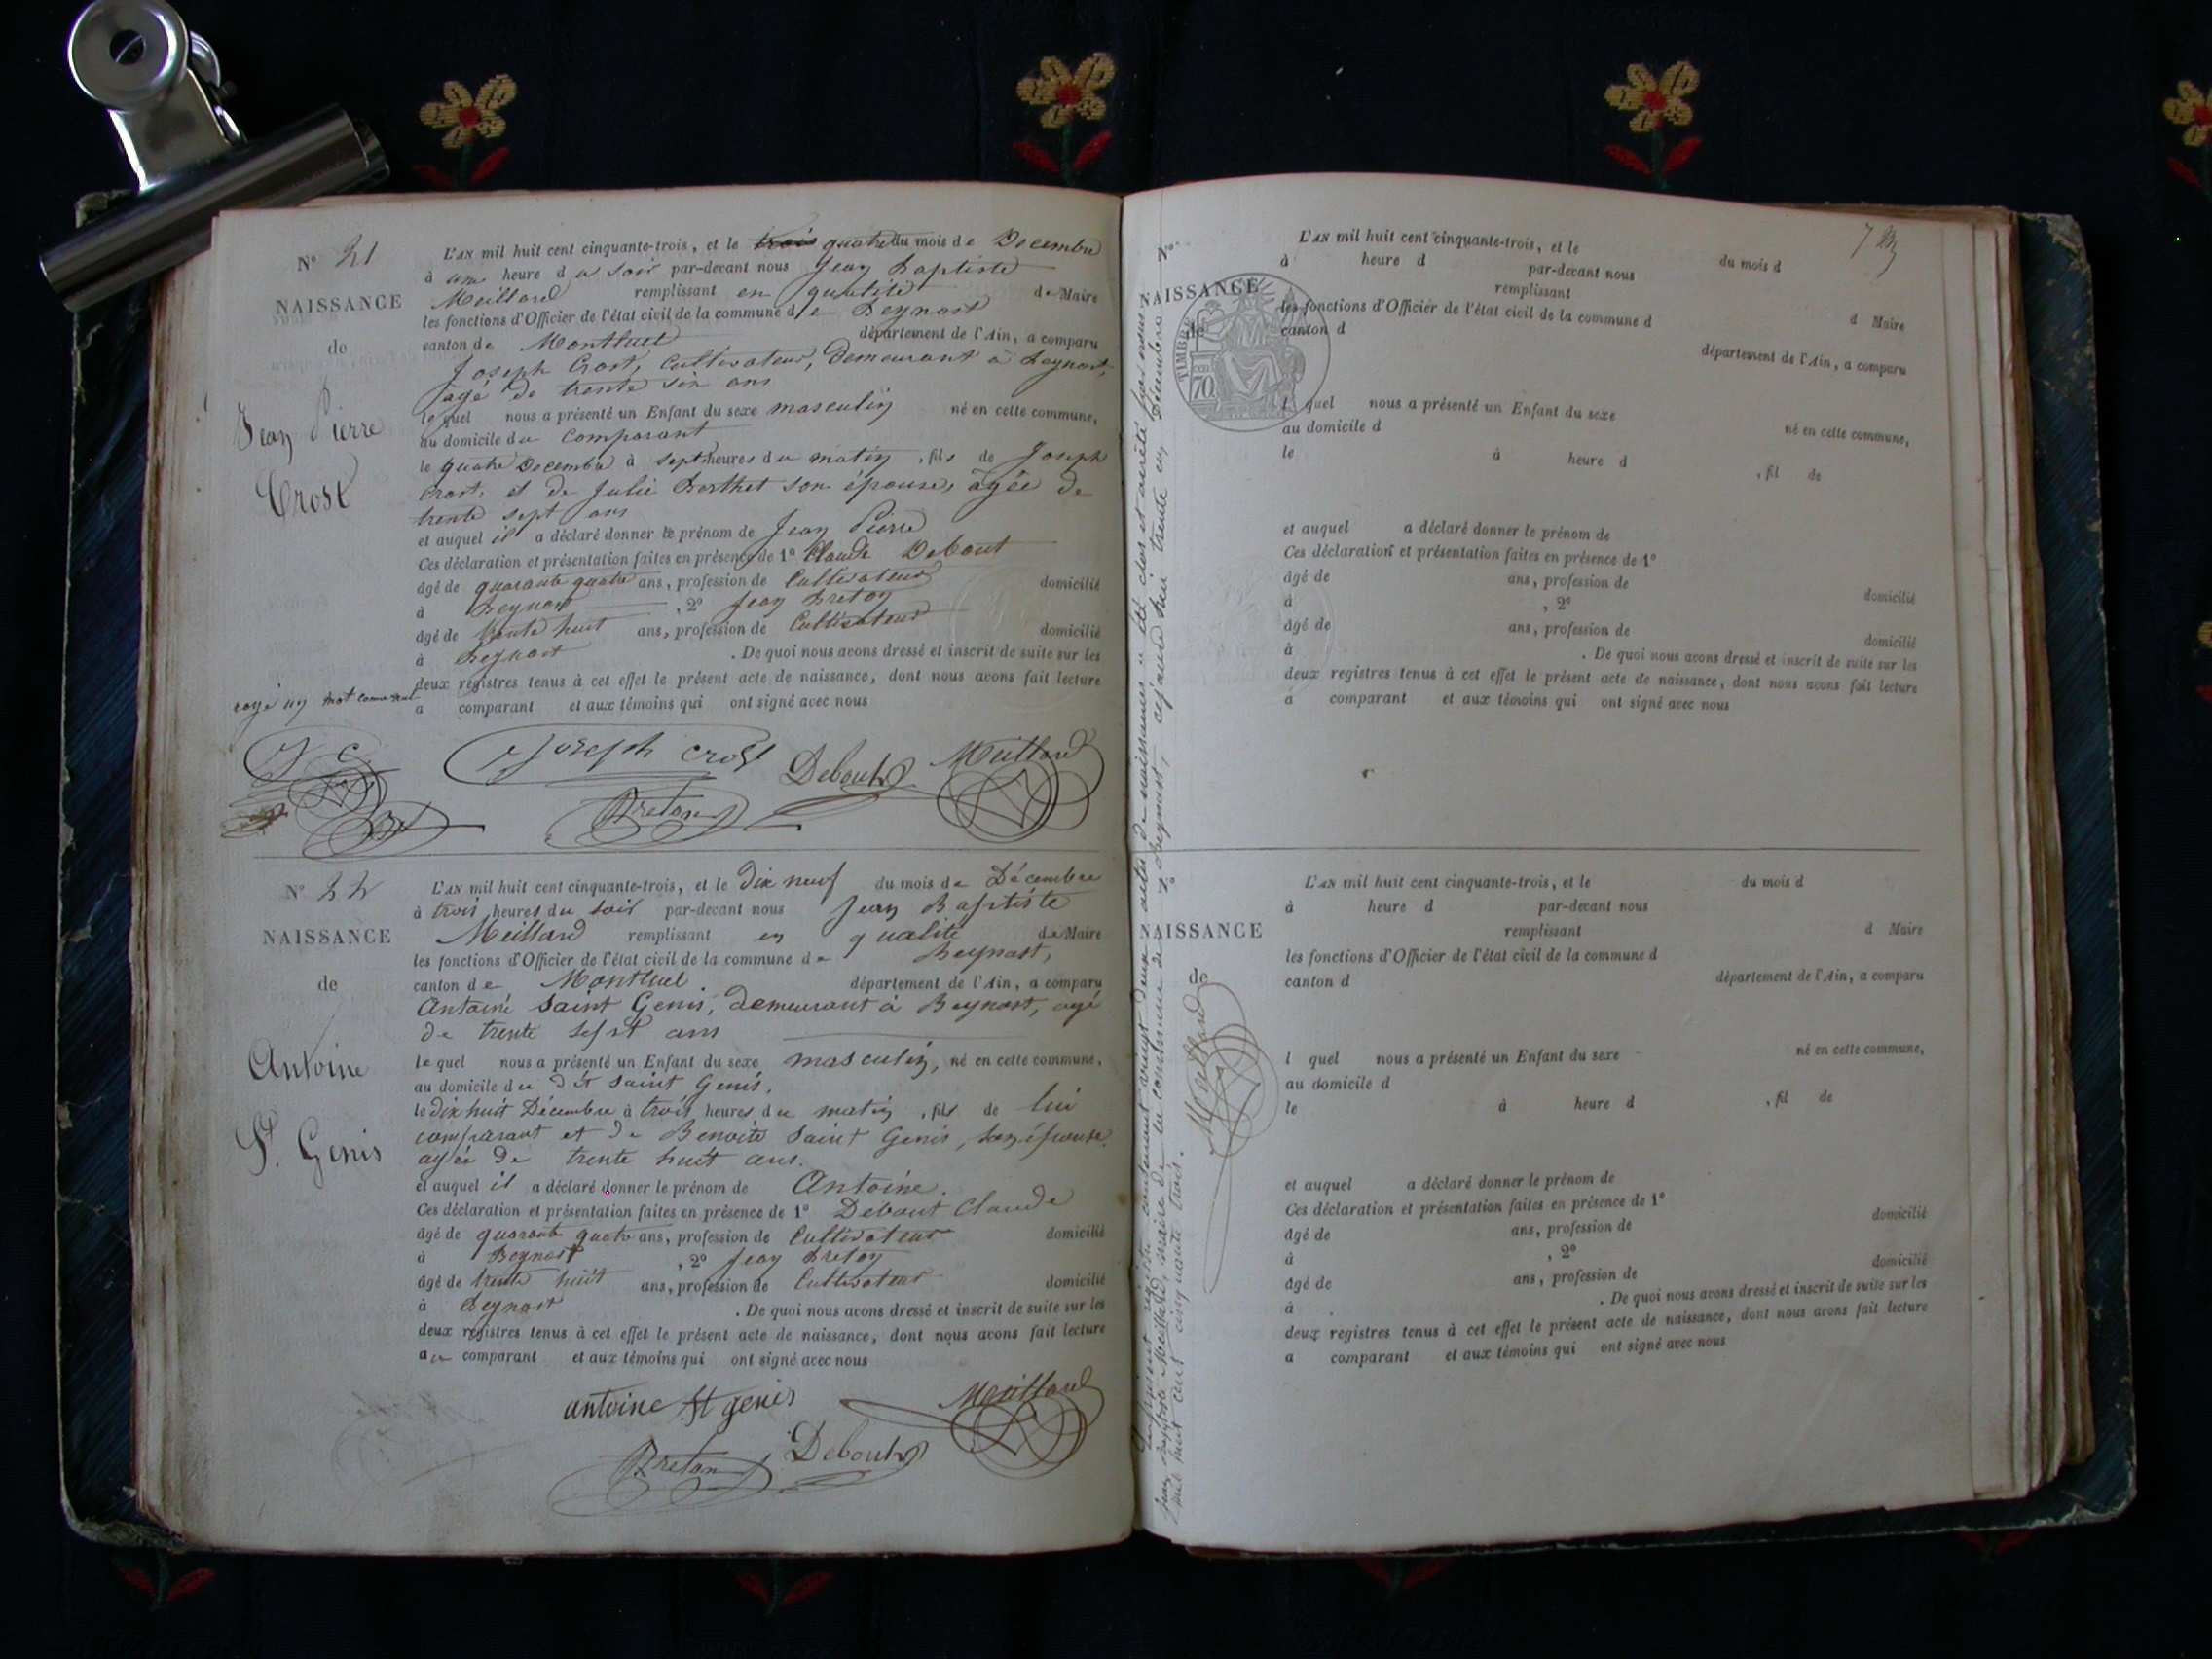 N° 21
NAISSANCE
de
Jean Pierre
Crost
L'AN mil huit cent cinquante-trois, et le trois quatre du mois de Decembre
à une heure du soir par-devant nous Jean Baptiste
Meillard remplissant en qualité de Maire
les fonctions d'Officier de l'état civil de la commune de Beynost
canton de Montluel département de l'Ain, a comparu
Joseph Crost, cultivateur, demeurant à Beynost,
agé de trente six ans
lequel nous a présenté un Enfant du sexe masculin né en cette commune,
au domicile du comparant
le quatre Decembre à sept heures du matin, fils de Joseph
Crost, et de Julie Berthet son épouse, agée de
trente sept ans
et auquel il a déclaré donner le prénom de Jean Pierre
Ces déclaration et présentation faites en présence de 1° Claude Debout
âgé de quarante quatre ans, profession de Cultivateur domicilié
à Beynost, 2° Jean Breton
âgé de trente huit ans, profession de Cultivateur domicilié
à Beynost. De quoi nous avons dressé et inscrit de suite sur les
deux registres tenus à cet effet le présent acte de naissance, dont nous avons fait lecture
a comparant et aux témoins qui ont signé avec nous
rayé un mot
J C
Joseph Crost Debout Meillard
Breton
N° 22
NAISSANCE
de
Antoine
St. Genis
L'AN mil huit cent cinquante-trois, et le dix neuf du mois de Décembre
à trois heures du soir par-devant nous Jean Baptiste
Meillard remplissant en qualité de Maire
les fonctions d'Officier de l'état civil de la commune de Beynost,
canton de Montluel département de l'Ain, a comparu
Antoine Saint Genis, demeurant à Beynost, agé
de trente sept ans
lequel nous a présenté un Enfant du sexe masculin, né en cette commune,
au domicile du dit Saint Genis.
le dix huit Décembre à trois heures du matin, fils de lui
comparant et de Benoite Saint Genis, son épouse,
agée de trente huit ans.
et auquel il a déclaré donner le prénom de Antoine.
Ces déclaration et présentation faites en présence de 1° Debout Claude
âgé de quarante quatre ans, profession de Cultivateur domicilié
à Beynost, 2° Jean Breton
âgé de trente huit ans, profession de Cultivateur domicilié
à Beynost. De quoi nous avons dressé et inscrit de suite sur les
deux registres tenus à cet effet le présent acte de naissance, dont nous avons fait lecture
au comparant et aux témoins qui ont signé avec nous
antoine st genis Meillard
Breton Debout
Le présent registre contenant vingt deux actes de naissances a été clos et arrêté par nous
Jean Baptiste Meillard, maire de la commune de Beynost, cejourd'hui trente un Décembre
mil huit cent cinquante trois.
Meillard
7
N°
NAISSANCE
de
TIMBRE
70
L'AN mil huit cent cinquante-trois, et le du mois d
à heure d par-devant nous
remplissant d Maire
les fonctions d'Officier de l'état civil de la commune d
canton d département de l'Ain, a comparu
l quel nous a présenté un Enfant du sexe né en cette commune,
au domicile d
le à heure d , fil de
et auquel a déclaré donner le prénom de
Ces déclaration et présentation faites en présence de 1°
âgé de ans, profession de domicilié
à , 2°
âgé de ans, profession de domicilié
à . De quoi nous avons dressé et inscrit de suite sur les
deux registres tenus à cet effet le présent acte de naissance, dont nous avons fait lecture
a comparant et aux témoins qui ont signé avec nous
N°
NAISSANCE
de
L'AN mil huit cent cinquante-trois, et le du mois d
à heure d par-devant nous
remplissant d Maire
les fonctions d'Officier de l'état civil de la commune d
canton d département de l'Ain, a comparu
l quel nous a présenté un Enfant du sexe né en cette commune,
au domicile d
le à heure d , fil de
et auquel a déclaré donner le prénom de
Ces déclaration et présentation faites en présence de 1°
âgé de ans, profession de domicilié
à , 2°
âgé de ans, profession de domicilié
à . De quoi nous avons dressé et inscrit de suite sur les
deux registres tenus à cet effet le présent acte de naissance, dont nous avons fait lecture
a comparant et aux témoins qui ont signé avec nous